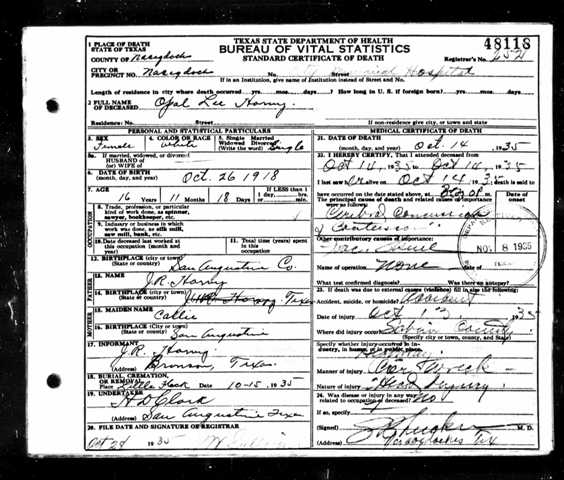 TEXAS STATE DEPARTMENT OF HEALTH
BUREAU OF VITAL STATISTICS
STANDARD CERTIFICATE OF DEATH
48118
1 PLACE OF DEATH
STATE OF TEXAS
COUNTY OF Nacogdoches
CITY OR PRECINCT NO. Nacogdoches No. Street Hospital
Registrar's No.
If in an Institution, give name of Institution instead of Street and No.
Length of residence in city where death occurred yrs. mos. days. ? How long in U. S. if foreign born? yrs. mos. days
2 FULL NAME OF DECEASED Opal Lee
Residence: No. Street
If non-residence give city, or town and state
PERSONAL AND STATISTICAL PARTICULARS
3. SEX Female
4. COLOR OR RACE White
5. Single Married Widowed Divorced (Write the word) Single
5a. If married, widowed, or divorced
HUSBAND OF
(or) WIFE OF
6. DATE OF BIRTH (month, day, and year) Oct. 26 1918
7. AGE 16 Years 11 Months 18 Days IF LESS THAN 1 day, hrs. min.
OCCUPATION
8. Trade, profession, or particular kind of work done, as spinner, sawyer, bookkeeper, etc.
9. Industry or business in which work was done, as silk mill, saw mill, bank, etc.
10. Date deceased last worked at this occupation (month and year)
11. Total time (years) spent in this occupation
12. BIRTHPLACE (City) (State or country) San Augustine Co.
FATHER
13. NAME J.R.
14. BIRTHPLACE (City) (State or country) Texas
MOTHER
15. MAIDEN NAME Callie
16. BIRTHPLACE (City) (State or country) San Augustine
17. INFORMANT J.R.
(Address) Bronson, Texas
18. BURIAL, CREMATION, OR REMOVAL
Place Date 10-15, 1935
19. UNDERTAKER H D Clark
(Address) San Augustine Texas
20. FILE DATE AND SIGNATURE OF REGISTRAR
Oct 1935
MEDICAL CERTIFICATE OF DEATH
21. DATE OF DEATH (month, day, and year) Oct. 14, 1935
22. I HEREBY CERTIFY, That I attended deceased from
Oct 14, 1935 to Oct 14, 1935
I last saw her alive on Oct 14 1935 death is said to
have occurred on the date stated above, at m.
The principal cause of death and related causes of importance were as follows:
Date of onset
Other contributory causes of importance:
NOV 8 1935
Name of operation None Date of
What test confirmed diagnosis? Was there an autopsy?
23. If death was due to external causes (violence) fill in also the following:
Accident, suicide, or homicide? Accident
Date of injury Oct 13, 1935
Where did injury occur? Sabine County
(Specify city or town, county, and State)
Specify whether injury occurred in industry, in home, or in public place.
Highway
Manner of injury Car Wreck
Nature of injury Head Injury
24. Was disease or injury in any way related to occupation of deceased? No
If so, specify
(Signed) M. D.
(Address) Nacogdoches Tex